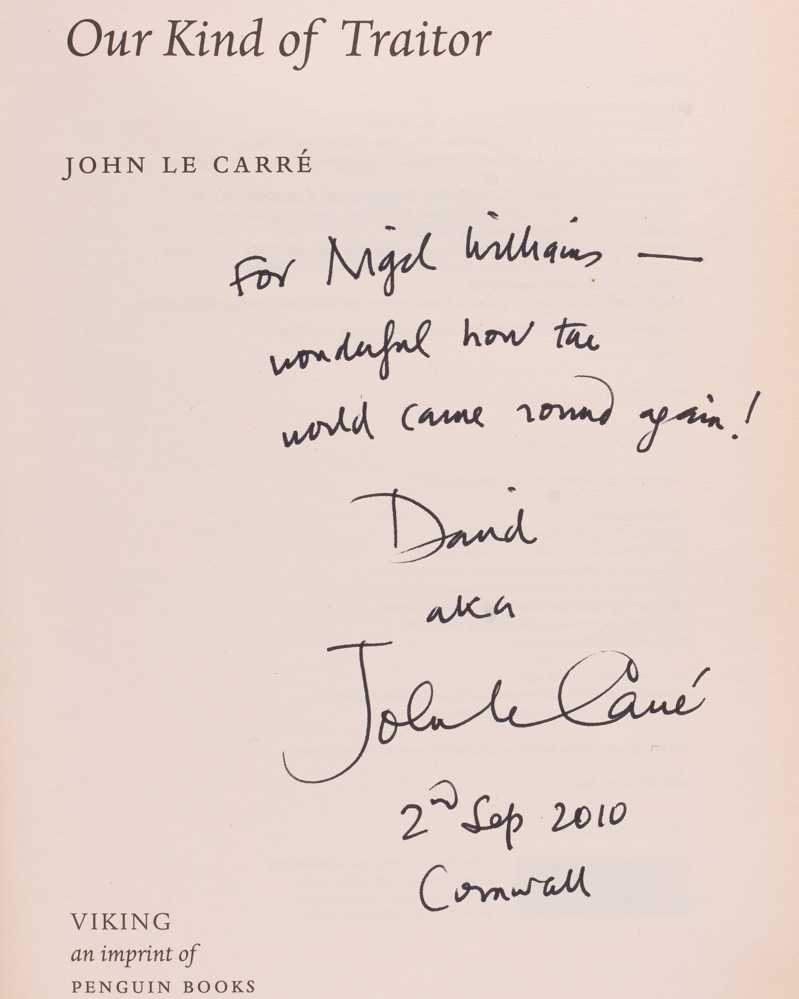 Our Kind of Traitor
JOHN LE CARRÉ
For Nigel Williams —
wonderful how the
world came round again!
David
aka
John le Carré
2nd Sep 2010
Cornwall
VIKING
an imprint of
PENGUIN BOOKS